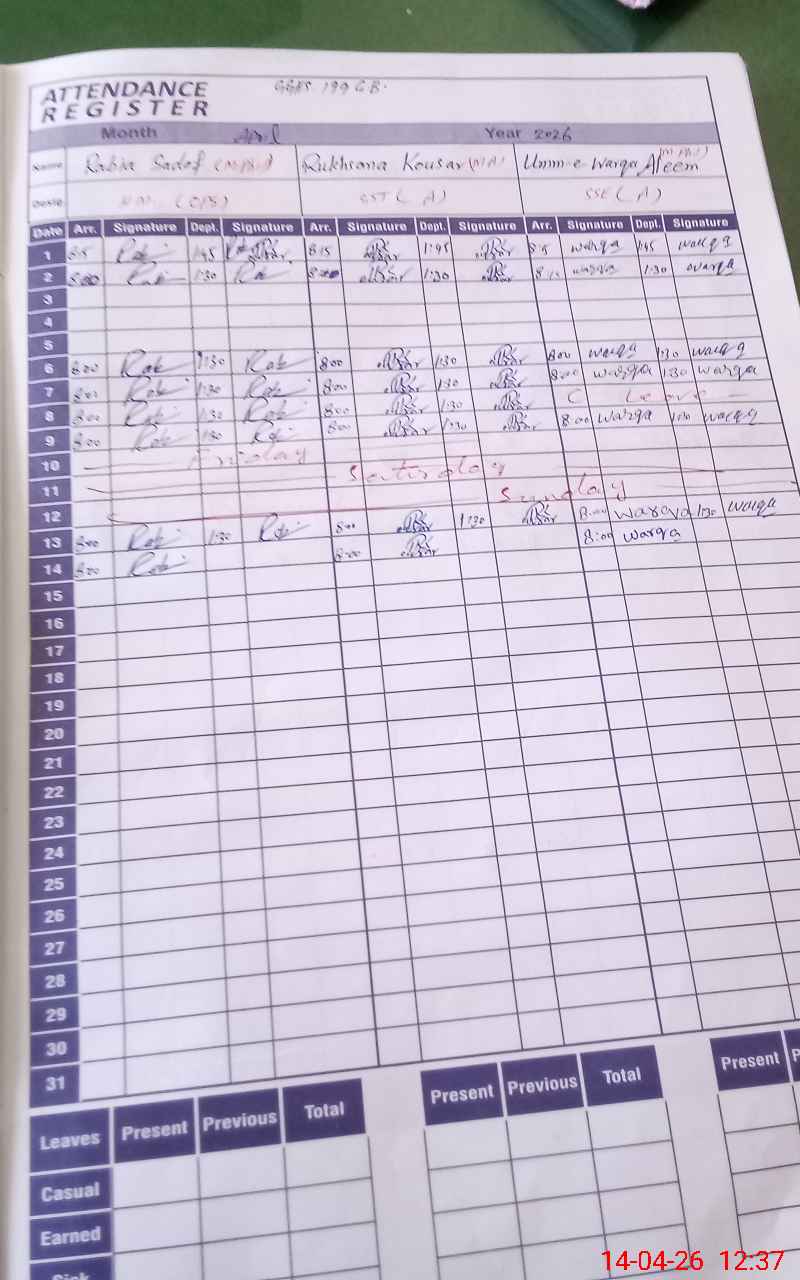 ATTENDANCE
REGISTER
GGHS. 199 GB.
Month April Year 2026
Name Rabia Sadaf Rukhsana Kousar (MA) Umm-e-Warqa Aleem
Desig. SST (A) SSE (A)
Date Arr. Signature Dept. Signature Arr. Signature Dept. Signature Arr. Signature Dept. Signature
1 8:15 1:45 8:15 1:45 8:15 warqa 1:45 warqa
2 8:00 1:30 1:30 warqa 1:30 warqa
3
4
5
6 8:00 Rab 1:30 Rab 8:00 1:30 800 warqa 1:30 warqa
7 8:00 Rab 1:30 Rab 800 1:30 8:00 warqa 1:30 warqa
8 8:00 Rab 1:30 Rab 800 1:30 C Leave
9 8:00 Rab 1:30 Rab 800 1:30 8:00 warqa 1:30 warqa
10 Friday
11 Saturday
12 Sunday
13 8:00 Rab 1:30 Rab 800 1:30 8:00 warqa 1:30 warqa
14 8:00 Rab 8:00 8:00 warqa
15
16
17
18
19
20
21
22
23
24
25
26
27
28
29
30
31
Leaves Present Previous Total Present Previous Total Present
Casual
Earned
14-04-26 12:37